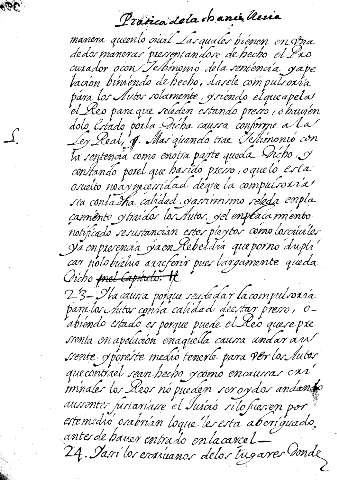 Pratica de la chancilleria
manera que en lo civil Las quales vienen en una
de dos maneras presentandose de hecho el Pro
curador o con Testimonio de la sentencia y ape
lacion viniendo de hecho, dasele compulsoria
para los Autos solamente, y siendo el que apela
el Reo para que se le den estando preso, o haviendo
dolo estado por la Dicha causa conforme a la
Ley Real, Mas quando trae Testimonio con
la sentencia como en otra parte queda Dicho y
constando por el que ha sido preso, o que lo esta
suelto no ay necesidad de que la compulsoria
sea con dicha calidad, y assimismo se le da empla
çamiento y traidos los Autos, y el emplaçamiento
notificado se sustancian estos pleytos como los civiles
ya en presencia ya en Rebeldia que por no dupli
car no lo buelvo a referir pues largamente queda
Dicho en el Capitulo. 11
23 - Y la causa porque se suele dar la compulsoria
para los Autos con la calidad de estar preso, o
abiendo estado es porque puede el Reo que se pre
senta en apelacion en aquella causa andar au
sente y por este medio tenerle para ver los Autos
que contra el se an hecho y como en causas cri
minales los Reos no pueden ser oydos andando
ausentes, frustrariase el Juicio si lo fuesen por
este medio o sabrian lo que les esta aberiguado,
antes de haver entrado en la carcel —
24. Y assi los escrivanos de los lugares Donde